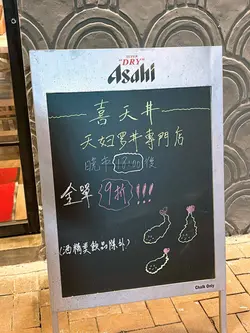 SUPER
"DRY"
Asahi
喜天丼
天婦罗丼專門店
晚市 18:00後
全單9折!!!
(酒精类飲品除外)
Chalk Only